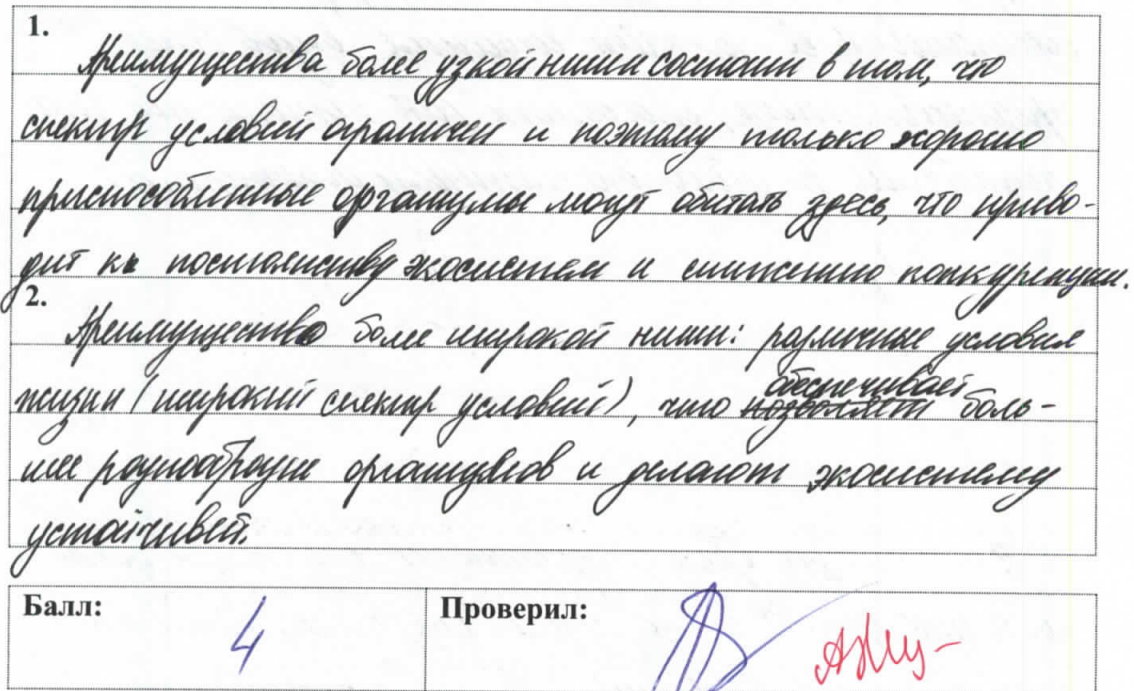 1.
Преимущества более узкой ниши состоит в том, что
спектр условий ограничен и поэтому только хорошо
приспособленные организмы могут обитать здесь, что приво-
дит к постоянству экосистем и снижению конкуренции.
2.
Преимущество более широкой ниши: различные условия
жизни (широкий спектр условий), что обеспечивает боль-
шее разнообразие организмов и делают экосистему
устойчивей.
Балл: 4 Проверил: